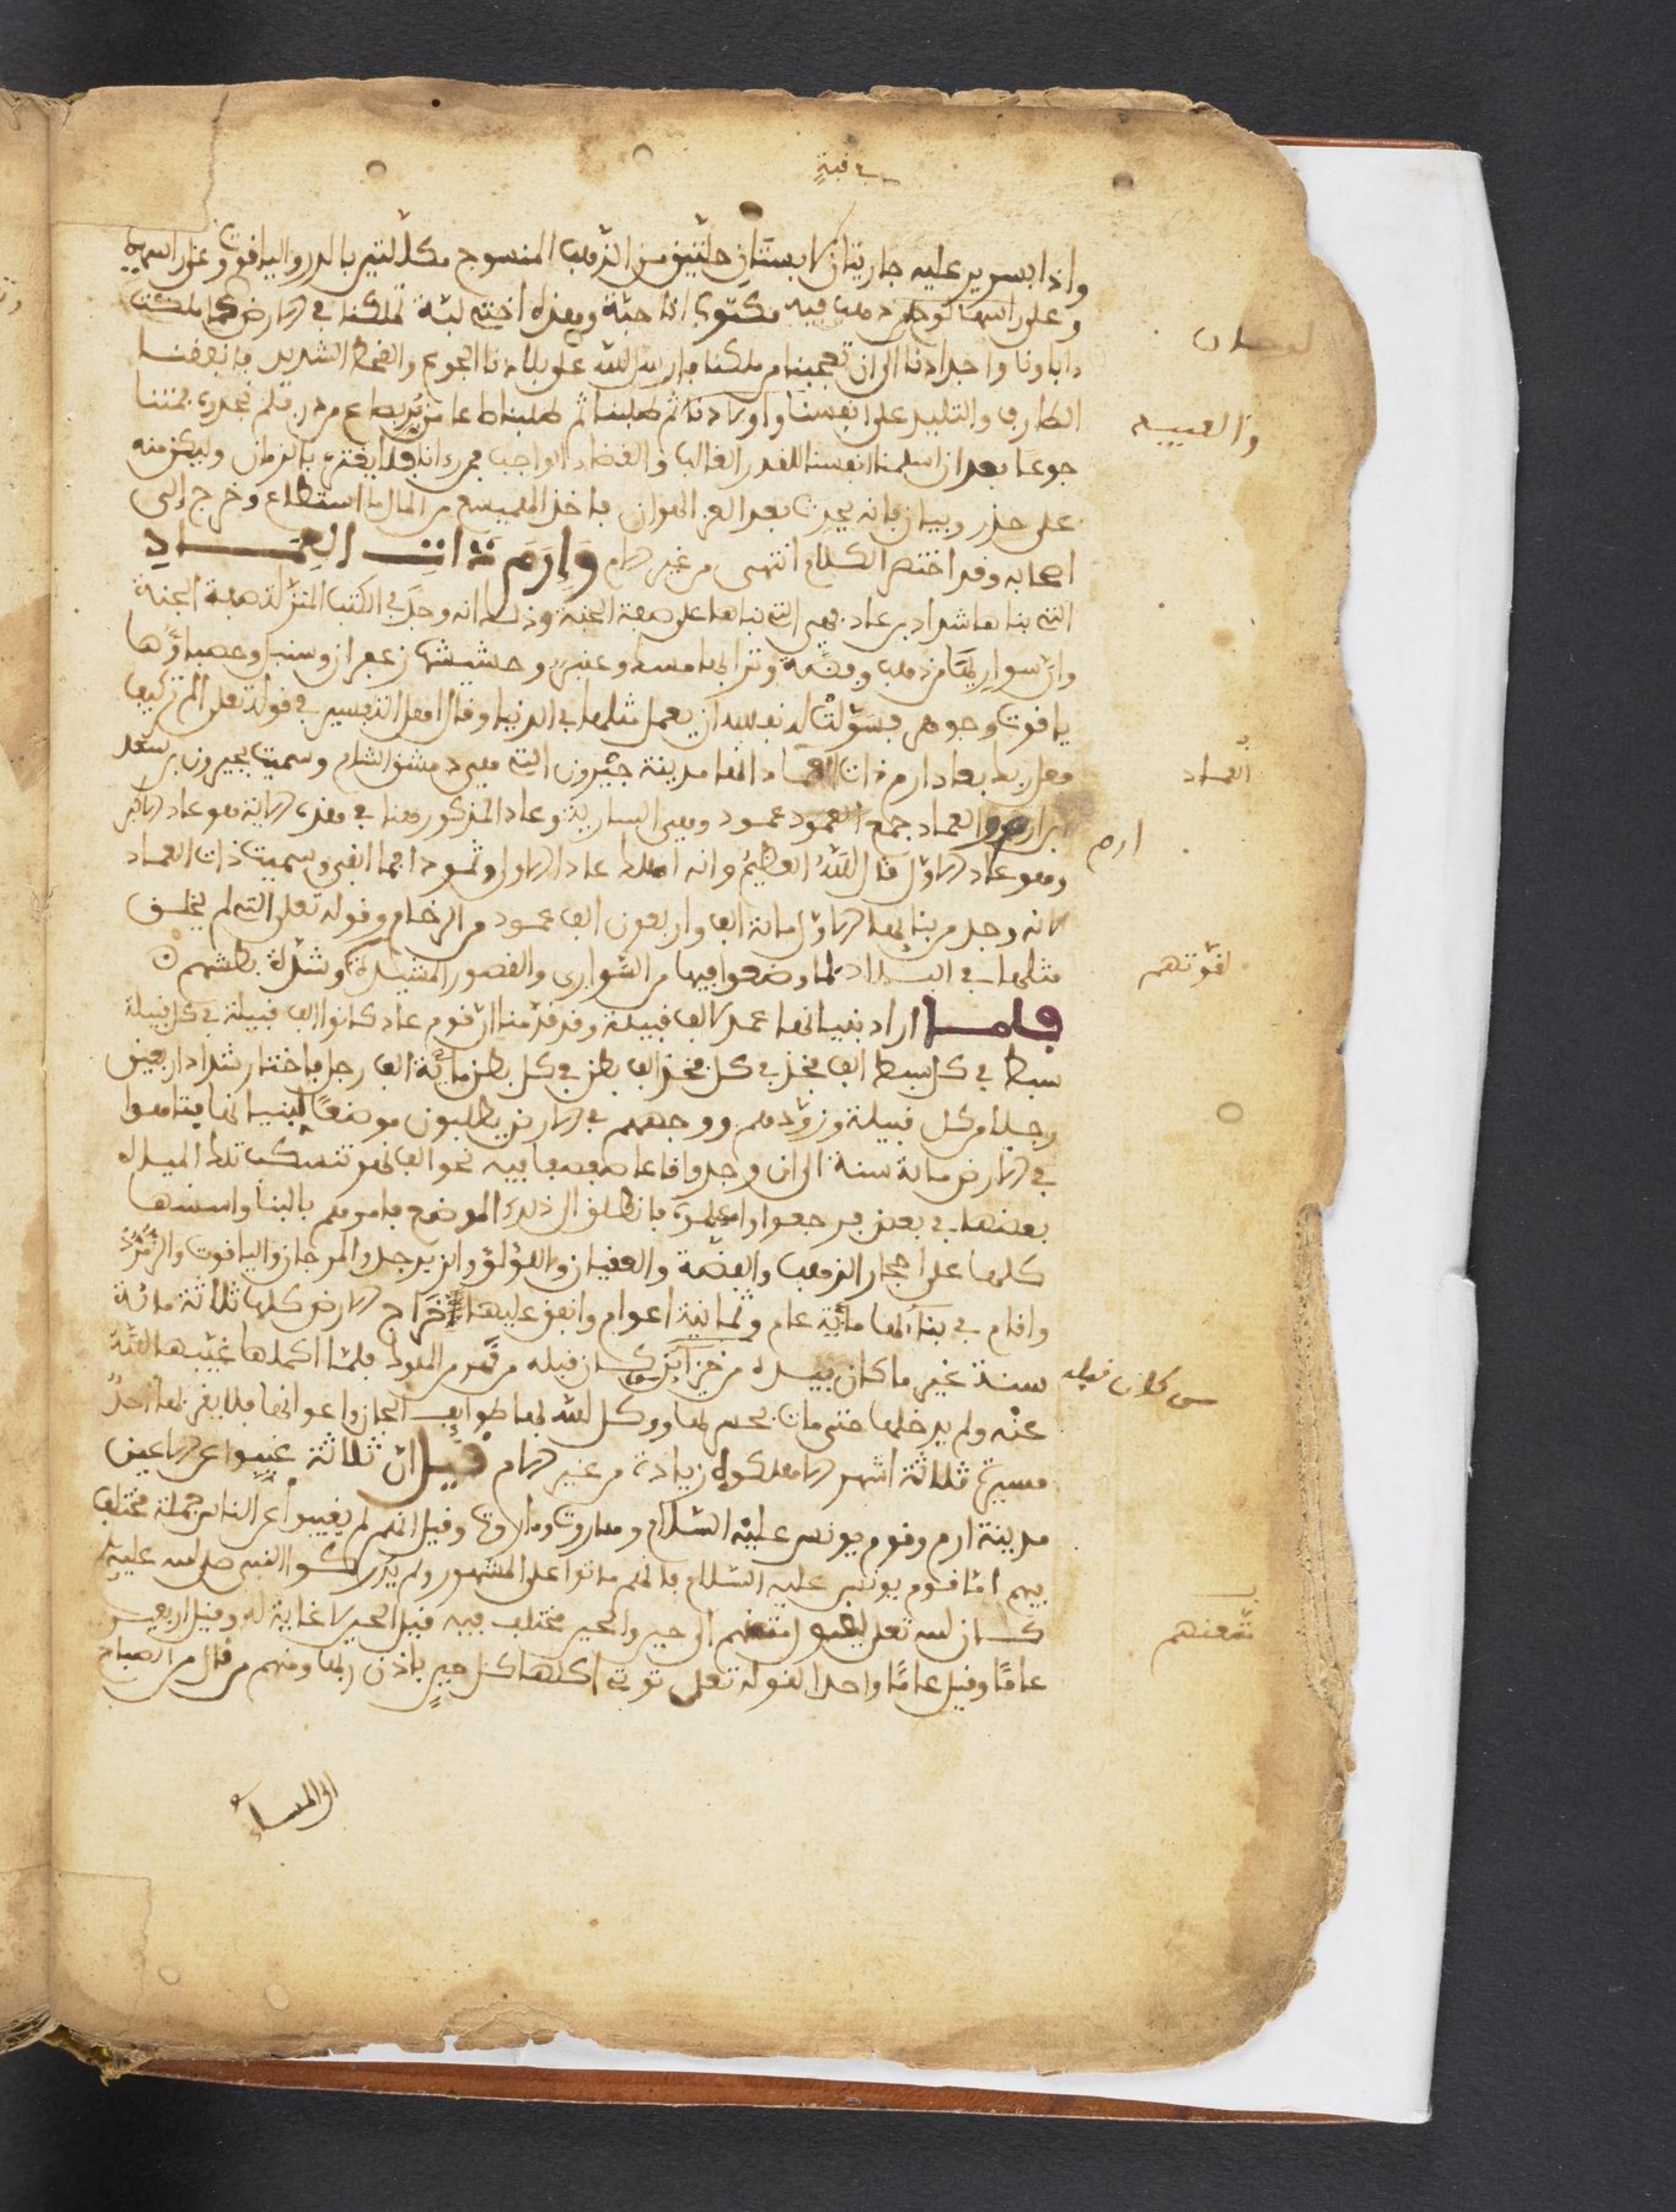 في قبة
واذا بسرير عليه جاريتان لابستان حلتين من الذهب المنسوج مكللتين بالدر والياقوت وعند راسيهما
وعلى راسها لوح من ذهب فيه مكتوب انا حبة وهذه اختي لبة ملكنا في الارض كما ملكت
لوحان
اباونا واجدادنا الى ان تعجبنا من ملكنا فارسل الله على بلادنا الجوع والقحط الشديد فانفقنا
الطارف والتليد على انفسنا واولادنا ثم طلبنا ثم طلبنا طعاما من بر بصاع من در فلم نجده فمتنا
والعبيد
جوعا بعد ان اسلمنا انفسنا للقدر الغالب والقضاء الواجب فمن رءانا فلا يغتر بالزمان وليكن منه
على حذر وبيان فانه يحدث بعد العز الهوان فاخذ الهميسع من المال ما استطاع وخرج الى
اصحابه وقد اختصر الكلام انتهى من غير الام وإرم ذات العماد
التي بناها شداد بن عاد فهي التي بناها على صفة الجنة وذلك انه وجد في الكتب المنزلة صفة الجنة
وان سواريها من ذهب وفضة وترابها مسك وعنبر وحشيشها زعفران وسنبل وحصباؤها
ياقوت وجوهر فسولت له نفسه ان يعمل مثلها في الدنيا وقال اهل التفسير في قوله تعلى الم تر كيف
فعل ربك بعاد ارم ذات العماد انها مدينة جيرون التي هي دمشق الشام وسميت بجيرون بن سعد
العماد
بن ارم والعماد جمع عمود وهي السارية وعاد المذكور هنا في هذه الاية هو عاد الاخر
ارم
وهو عاد الاول قال الله العظيم وانه اهلك عادا الاولى وثمودا فما ابقى وسميت ذات العماد
لانه وجد من بنائها الاول مائة الف واربعون الف عمود من الرخام وقوله تعلى التي لم يخلق
مثلها في البلاد لما وضعوا فيها من السواري والقصور المشيدة وشدة بطشهم
لقوتهم
فلما اراد بنيانها عمد لالف قبيلة وقد قدمنا ان قوم عاد كانوا الف قبيلة في كل قبيلة
سبط في كل سبط الف فخذ في كل فخذ الف بطن في كل بطن مائة الف رجل فاختار شداد اربعين
رجلا من كل قبيلة وزودهم ووجههم في الارض يطلبون موضعا لبنيانها فتاهوا
في الارض مائة سنة الى ان وجدوا قاعا صفصفا فيه نحو الف نهر تنسكب تلك المياه
بعضها في بعض فرجعوا واعلموه فانطلق الى ذلك الموضع فامرهم بالبنا واسسها
كلها على احجار الذهب والفضة والعقيان واللؤلؤ والزبرجد والمرجان والياقوت والزمرد
واقام في بنائها مائة عام وثمانية اعوام وانفق عليها خراج الارض كلها ثلاثة مائة
سنة غير ما كان بيده من خزائن كان قبله من الملوك فلما اكملها غيبها الله
من كان قبله
عنه ولم يدخلها حتى مات بحسرتها ووكل الله بها طوايف الجان واعوانها فلا يقربها احد
مسيرة ثلاثة اشهر الا هلكوه زيادة من غير الام قيل ان ثلاثة غيبوا عن الاعين
مدينة ارم وقوم يونس عليه السلام وهاروت وماروت وقيل انهم لم يغيبوا عن الناس جملة مختلف
فيهم اما قوم يونس عليه السلام فانهم ماتوا على المشهور ولم يدركوا النبي صلى الله عليه
لان الله تعلى يقول متعنهم الى حين والحين مختلف فيه قيل الحين لا غاية له وقيل اربعين
متعنهم
عاما وقيل عاما واحدا لقوله تعلى توتي اكلها كل حين باذن ربها ومنهم من قال من الصباح
الى المساء